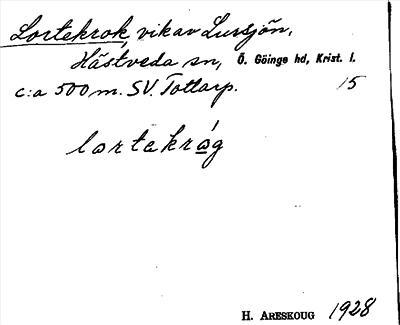 Lortekrok, vik av Lursjön,
Hästveda sn, Ö. Göinge hd, Krist. l.
c:a 500 m. SV. Tottarp. 15
lortekróg
H. ARESKOUG 1928